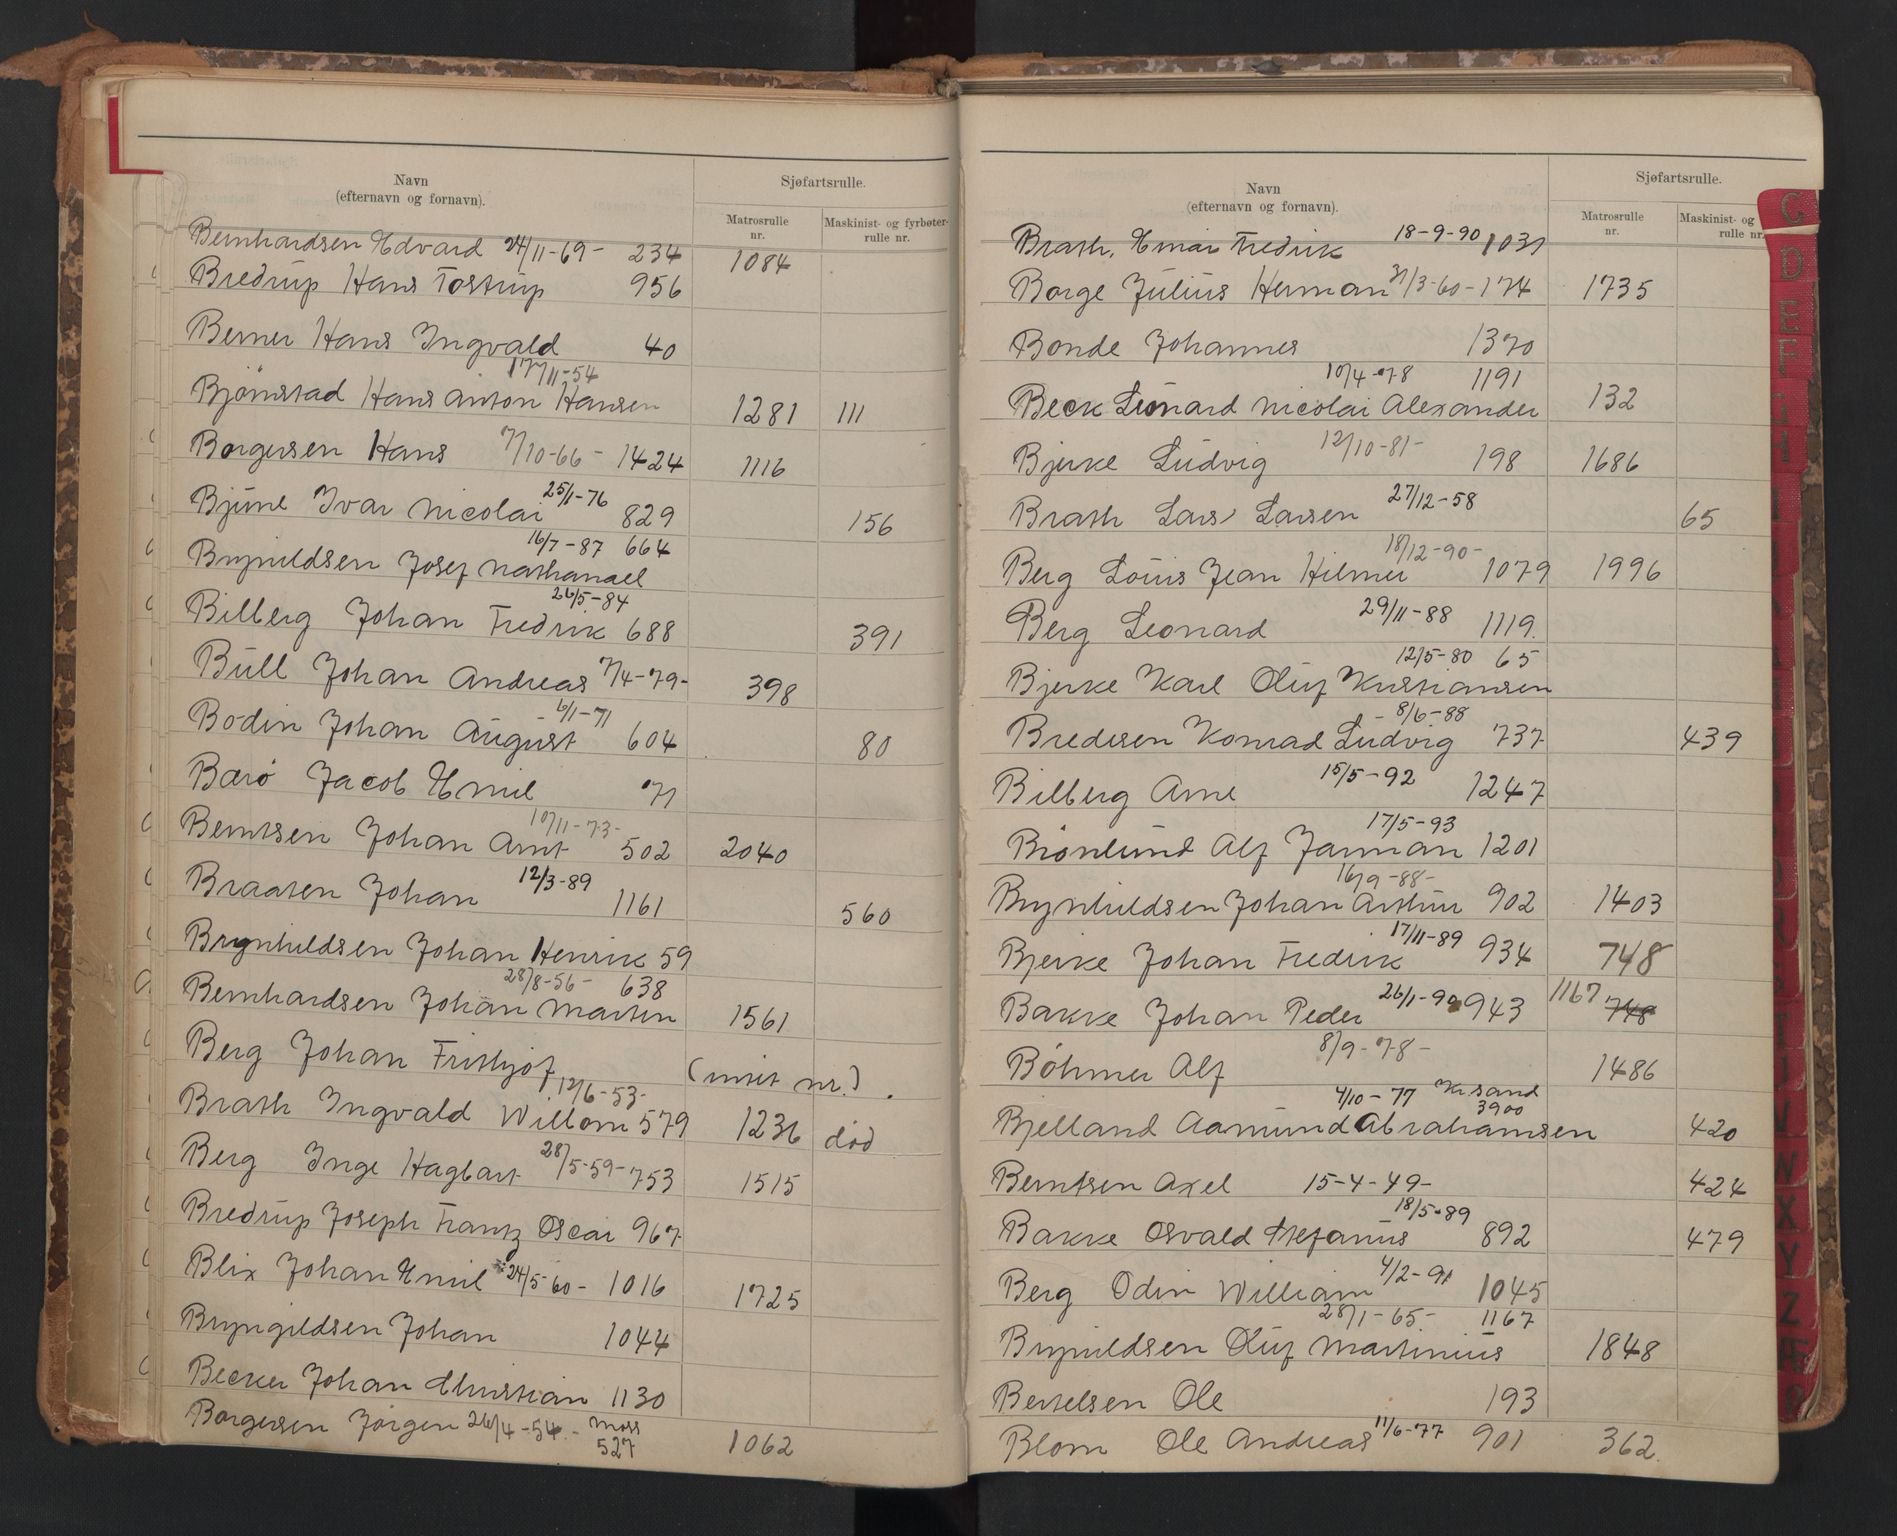 Navn
(efternavn og fornavn).
Sjøfartsrulle.
Matrosrulle nr.
Maskinist- og fyrbøter-rulle nr.
Bernhardsen Edvard 24/11-69- 234 1084
Bredrup Hans Tostrup 956
Berner Hans Ingvald 40
17/11-54
Bjørnstad Hans Anton Hansen 1281 111
Borgersen Hans 7/10-66- 1424 1116
25/1-76
Bjune Ivar Nicolai 829 156
16/7-87 664
Brynildsen Josef Nathanael
26/5-84
Bilberg Johan Fredrik 688 391
Bull Johan Andreas 7/4-79- 398
6/1-71
Bodin Johan August 604 80
Bærø Jacob Emil 71
10/11-73-
Berntsen Johan Arnt 502 2040
Braaten Johan 12/3-89 1161 560
Brynhildsen Johan Henrik 59
28/8-56- 638
Bernhardsen Johan Martin 1561
Berg Johan Frithjof (intet nr.)
12/6-53-
Brath Ingvald Willom 579 1236 død
Berg Inge Hagbart 28/5-59- 753 1515
Bredrup Joseph Frantz Oscar 967
Blix Johan Emil 24/5-60- 1016 1725
Bryngildsen Johan 1044
Becker Johan Christian 1130
Borgersen Jørgen 26/4-54.- Moss 527 1062
Navn
(efternavn og fornavn).
Sjøfartsrulle.
Matrosrulle nr.
Maskinist- og
rulle nr.
Brath, Einar Fredrik 18-9-90 1031
Borge Julius Herman 31/3-60- 174 1735
Bonde Johannes 1370
10/4-78 1191
Beck Leonard Nicolai Alexander 132
Bjerke Ludvig 12/10-81- 198 1686
Brath Lars Larsen 27/12-58 65
18/12-90-
Berg Louis Jean Hilmer 1079 1996
Berg Leonard 29/11-88 1119.
12/5-80 65
Bjerke Karl Oluf Kristiansen
- 8/6-88
Bredesen Konrad Ludvig 737 439
Bilberg Arne 15/5-92 1247
17/5-93
Brønlund Alf Jarman 1201
16/9-88-
Brynhildsen Johan Arthur 902 1403
17/11-89
Bjerke Johan Fredrik 934 748
Bakke Johan Peder 26/1-90 943 1167 748
Bøhmer Alf 8/9-78- 1486
4/10-77 Kr.sand 3900
Bjelland Aamund Abrahamsen 420
Berntsen Axel 15-4-49- 424
18/5-89
Bakke Osvald Stefanus 892 479
Berg Odin William 4/2-91 1045
28/1-65- 1167
Brynildsen Oluf Martinius 1848
Bertelsen Ole 193
Blom Ole Andreas 11/6-77 901 362.
C
D
E
F
V
W
X
Y
Z
Æ